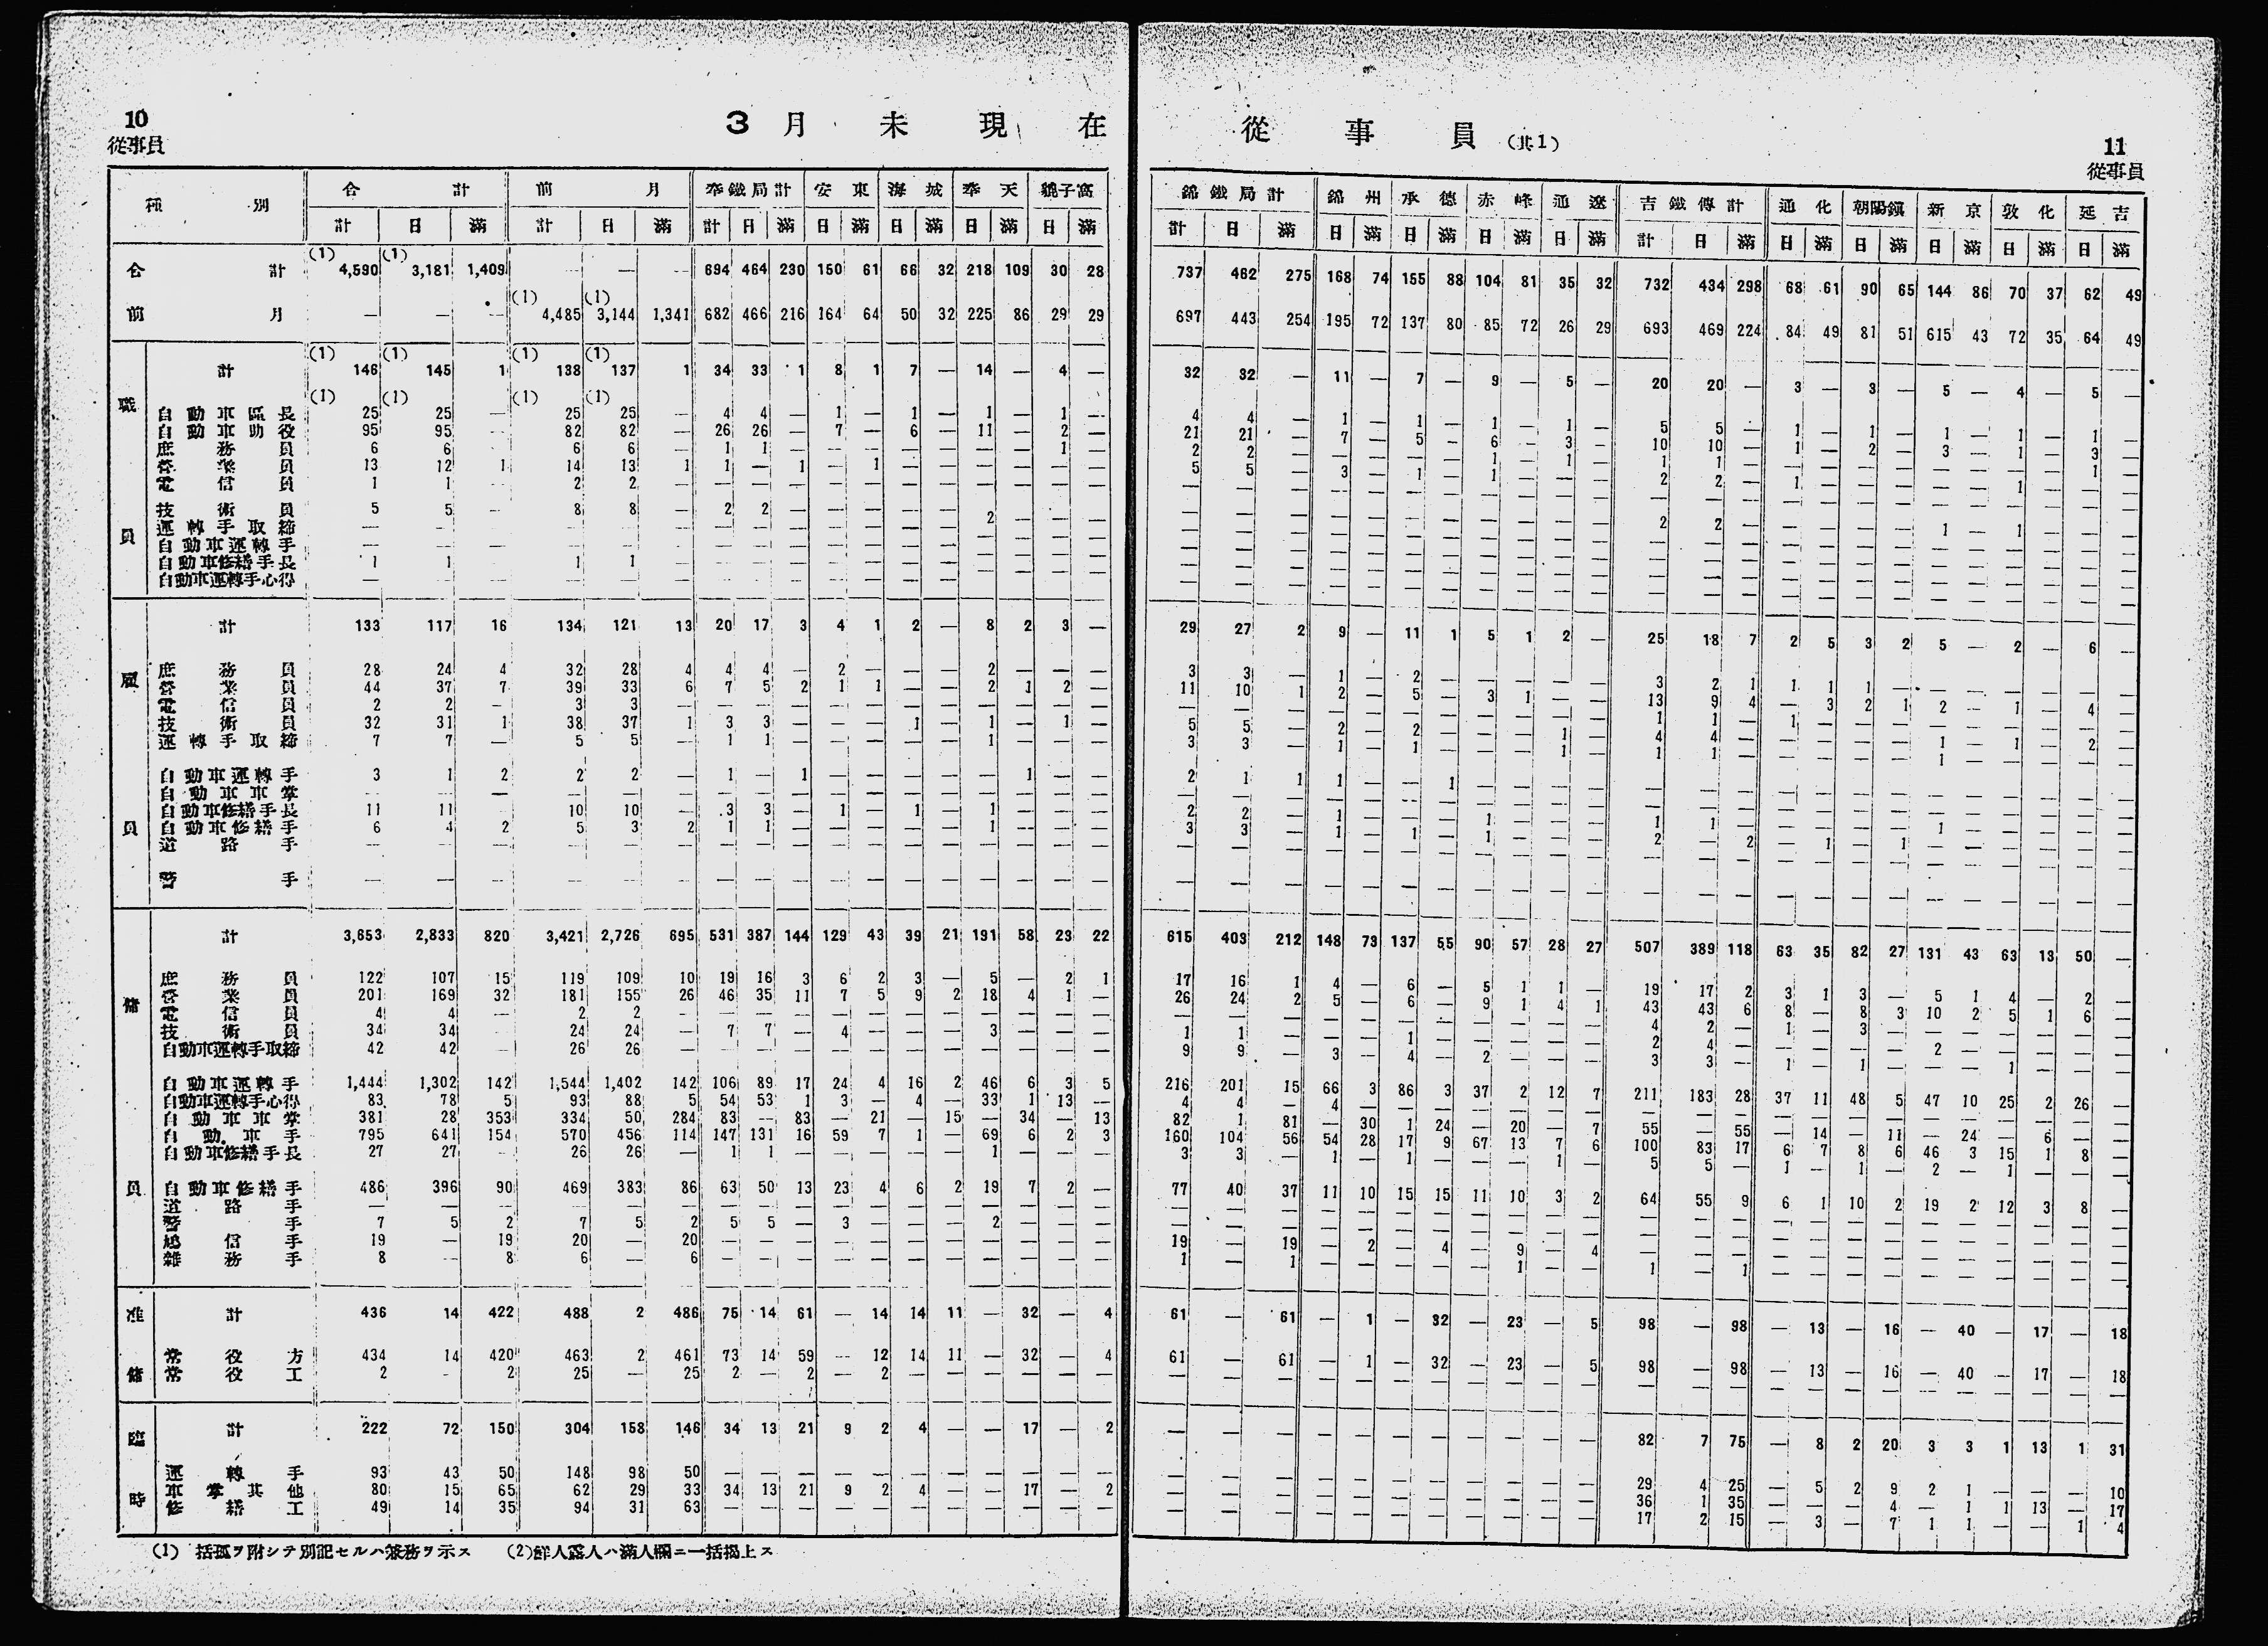 10
從事員
3月末現在
種別 合計 前月 奉鐵局計 安東 海城 奉天 貔子窩
計 日 滿 計 日 滿 計 日 滿 日 滿 日 滿 日 滿 日 滿
合計 (1) 4,590 (1) 3,181 1,409 — — — 694 464 230 150 61 66 32 218 109 30 28
前月 — — — (1) 4,485 (1) 3,144 1,341 682 466 216 164 64 50 32 225 86 29 29
職員
計 (1) 146 (1) 145 1 (1) 138 (1) 137 1 34 33 1 8 1 7 — 14 — 4 —
自動車區長 (1) 25 (1) 25 — (1) 25 (1) 25 — 4 4 — 1 — 1 — 1 — 1 —
自動車助役 95 95 — 82 82 — 26 26 — 7 — 6 — 11 — 2 —
庶務員 6 6 — 6 6 — 1 1 — — — — — — — 1 —
營業員 13 12 1 14 13 1 1 — 1 — 1 — — — — — —
電信員 1 1 — 2 2 — — — — — — — — — — — —
技術員 5 5 — 8 8 — 2 2 — — — — — 2 — — —
運轉手取締 — — — — — — — — — — — — — — — — —
自動車運轉手 — — — — — — — — — — — — — — — — —
自動車修繕手長 1 1 — 1 1 — — — — — — — — — — — —
自動車運轉手心得 — — — — — — — — — — — — — — — — —
雇員
計 133 117 16 134 121 13 20 17 3 4 1 2 — 8 2 3 —
庶務員 28 24 4 32 28 4 4 4 — 2 — — — 2 — — —
營業員 44 37 7 39 33 6 7 5 2 1 1 — — 2 1 2 —
電信員 2 2 — 3 3 — — — — — — — — — — — —
技術員 32 31 1 38 37 1 3 3 — — — 1 — 1 — 1 —
運轉手取締 7 7 — 5 5 — 1 1 — — — — — 1 — — —
自動車運轉手 3 1 2 2 2 — 1 — 1 — — — — — 1 — —
自動車車掌 — — — — — — — — — — — — — — — — —
自動車修繕手長 11 11 — 10 10 — 3 3 — 1 — 1 — 1 — — —
自動車修繕手 6 4 2 5 3 2 1 1 — — — — — 1 — — —
道路手 — — — — — — — — — — — — — — — — —
警手 — — — — — — — — — — — — — — — — —
傭員
計 3,653 2,833 820 3,421 2,726 695 531 387 144 129 43 39 21 191 58 23 22
庶務員 122 107 15 119 109 10 19 16 3 6 2 3 — 5 — 2 1
營業員 201 169 32 181 155 26 46 35 11 7 5 9 2 18 4 1 —
電信員 4 4 — 2 2 — — — — — — — — — — — —
技術員 34 34 — 24 24 — 7 7 — 4 — — — 3 — — —
自動車運轉手取締 42 42 — 26 26 — — — — — — — — — — — —
自動車運轉手 1,444 1,302 142 1,544 1,402 142 106 89 17 24 4 16 2 46 6 3 5
自動車運轉手心得 83 78 5 93 88 5 54 53 1 3 — 4 — 33 1 13 —
自動車車掌 381 28 353 334 50 284 83 — 83 — 21 — 15 — 34 — 13
自動車手 795 641 154 570 456 114 147 131 16 59 7 1 — 69 6 2 3
自動車修繕手長 27 27 — 26 26 — 1 1 — — — — — 1 — — —
自動車修繕手 486 396 90 469 383 86 63 50 13 23 4 6 2 19 7 2 —
道路手 — — — — — — — — — — — — — — — — —
警手 7 5 2 7 5 2 5 5 — 3 — — — 2 — — —
鳩信手 19 — 19 20 — 20 — — — — — — — — — — —
雜務手 8 — 8 6 — 6 — — — — — — — — — — —
准傭
計 436 14 422 488 2 486 75 14 61 — 14 14 11 — 32 — 4
常役方 434 14 420 463 2 461 73 14 59 — 12 14 11 — 32 — 4
常役工 2 — 2 25 — 25 2 — 2 — 2 — — — — — —
臨時
計 222 72 150 304 158 146 34 13 21 9 2 4 — — 17 — 2
運轉手 93 43 50 148 98 50 — — — — — — — — — — —
車掌其他 80 15 65 62 29 33 34 13 21 9 2 4 — — 17 — 2
修繕工 49 14 35 94 31 63 — — — — — — — — — — —
(1) 括孤ヲ附シテ別記セルハ兼務ヲ示ス (2)鮮人露人ハ滿人欄ニ一括揭上ス
從事員(其1)
11
從事員
錦鐵局計 錦州 承德 赤峰 通遼 吉鐵傳計 通化 朝陽鎭 新京 敦化 延吉
計 日 滿 日 滿 日 滿 日 滿 日 滿 計 日 滿 日 滿 日 滿 日 滿 日 滿 日 滿
737 462 275 168 74 155 88 104 81 35 32 732 434 298 68 61 90 65 144 86 70 37 62 49
697 443 254 195 72 137 80 85 72 26 29 693 469 224 84 49 81 51 615 43 72 35 64 49
32 32 — 11 — 7 — 9 — 5 — 20 20 — 3 — 3 — 5 — 4 — 5 —
4 4 — 1 — 1 — 1 — 1 — 5 5 — 1 — 1 — 1 — 1 — 1 —
21 21 — 7 — 5 — 6 — 3 — 10 10 — 1 — 2 — 3 — 1 — 3 —
2 2 — — — — — 1 — 1 — 1 1 — — — — — — — — — 1 —
5 5 — 3 — 1 — 1 — — — 2 2 — 1 — — — — — 1 — — —
— — — — — — — — — — — — — — — — — — — — — — — —
— — — — — — — — — — — 2 2 — — — — — 1 — 1 — — —
— — — — — — — — — — — — — — — — — — — — — — — —
— — — — — — — — — — — — — — — — — — — — — — — —
— — — — — — — — — — — — — — — — — — — — — — — —
— — — — — — — — — — — — — — — — — — — — — — — —
29 27 2 9 — 11 1 5 1 2 — 25 18 7 2 5 3 2 5 — 2 — 6 —
3 3 — 1 — 2 — — — — — 3 2 1 1 1 1 — — — — — — —
11 10 1 2 — 5 — 3 1 — — 13 9 4 — 3 2 1 2 — 1 — 4 —
— — — — — — — — — — — 1 1 — 1 — — — — — — — — —
5 5 — 2 — 2 — — — 1 — 4 4 — — — — — 1 — 1 — 2 —
3 3 — 1 — 1 — — — 1 — 1 1 — — — — — 1 — — — — —
2 1 1 1 — — 1 — — — — — — — — — — — — — — — — —
— — — — — — — — — — — — — — — — — — — — — — — —
2 2 — 1 — — — 1 — — — 1 1 — — — — — 1 — — — — —
3 3 — 1 — 1 — 1 — — — 2 — 2 — 1 — 1 — — — — — —
— — — — — — — — — — — — — — — — — — — — — — — —
— — — — — — — — — — — — — — — — — — — — — — — —
615 403 212 148 73 137 55 90 57 28 27 507 389 118 63 35 82 27 131 43 63 13 50 —
17 16 1 4 — 6 — 5 1 1 — 19 17 2 3 1 3 — 5 1 4 — 2 —
26 24 2 5 — 6 — 9 1 4 1 43 43 6 8 — 8 3 10 2 5 1 6 —
— — — — — — — — — — — 4 2 — 1 — 3 — — — — — — —
1 1 — — — 1 — — — — — 2 4 — — — — — 2 — — — — —
9 9 — 3 — 4 — 2 — — — 3 3 — 1 — 1 — — — 1 — — —
216 201 15 66 3 86 3 37 2 12 7 211 183 28 37 11 48 5 47 10 25 2 26 —
4 4 — 4 — — — — — — — — — — — — — — — — — — — —
82 1 81 — 30 1 24 — 20 — 7 55 — 55 — 14 — 11 — 24 — 6 — —
160 104 56 54 28 17 9 67 13 7 6 100 83 17 6 7 8 6 46 3 15 1 8 —
3 3 — 1 — 1 — — — 1 — 5 5 — 1 — 1 — 2 — 1 — — —
77 40 37 11 10 15 15 11 10 3 2 64 55 9 6 1 10 2 19 2 12 3 8 —
— — — — — — — — — — — — — — — — — — — — — — — —
— — — — — — — — — — — — — — — — — — — — — — — —
19 — 19 — 2 — 4 — 9 — 4 — — — — — — — — — — — — —
1 — 1 — — — — — 1 — — 1 — 1 — — — — — — — — — —
61 — 61 — 1 — 32 — 23 — 5 98 — 98 — 13 — 16 — 40 — 17 — 18
61 — 61 — 1 — 32 — 23 — 5 98 — 98 — 13 — 16 — 40 — 17 — 18
— — — — — — — — — — — — — — — — — — — — — — — —
— — — — — — — — — — — 82 7 75 — 8 2 20 3 3 1 13 1 31
— — — — — — — — — — — 29 4 25 — 5 2 9 2 1 — — — 10
— — — — — — — — — — — 36 1 35 — — — 4 — 1 1 13 — 17
— — — — — — — — — — — 17 2 15 — 3 — 7 1 1 — — 1 4